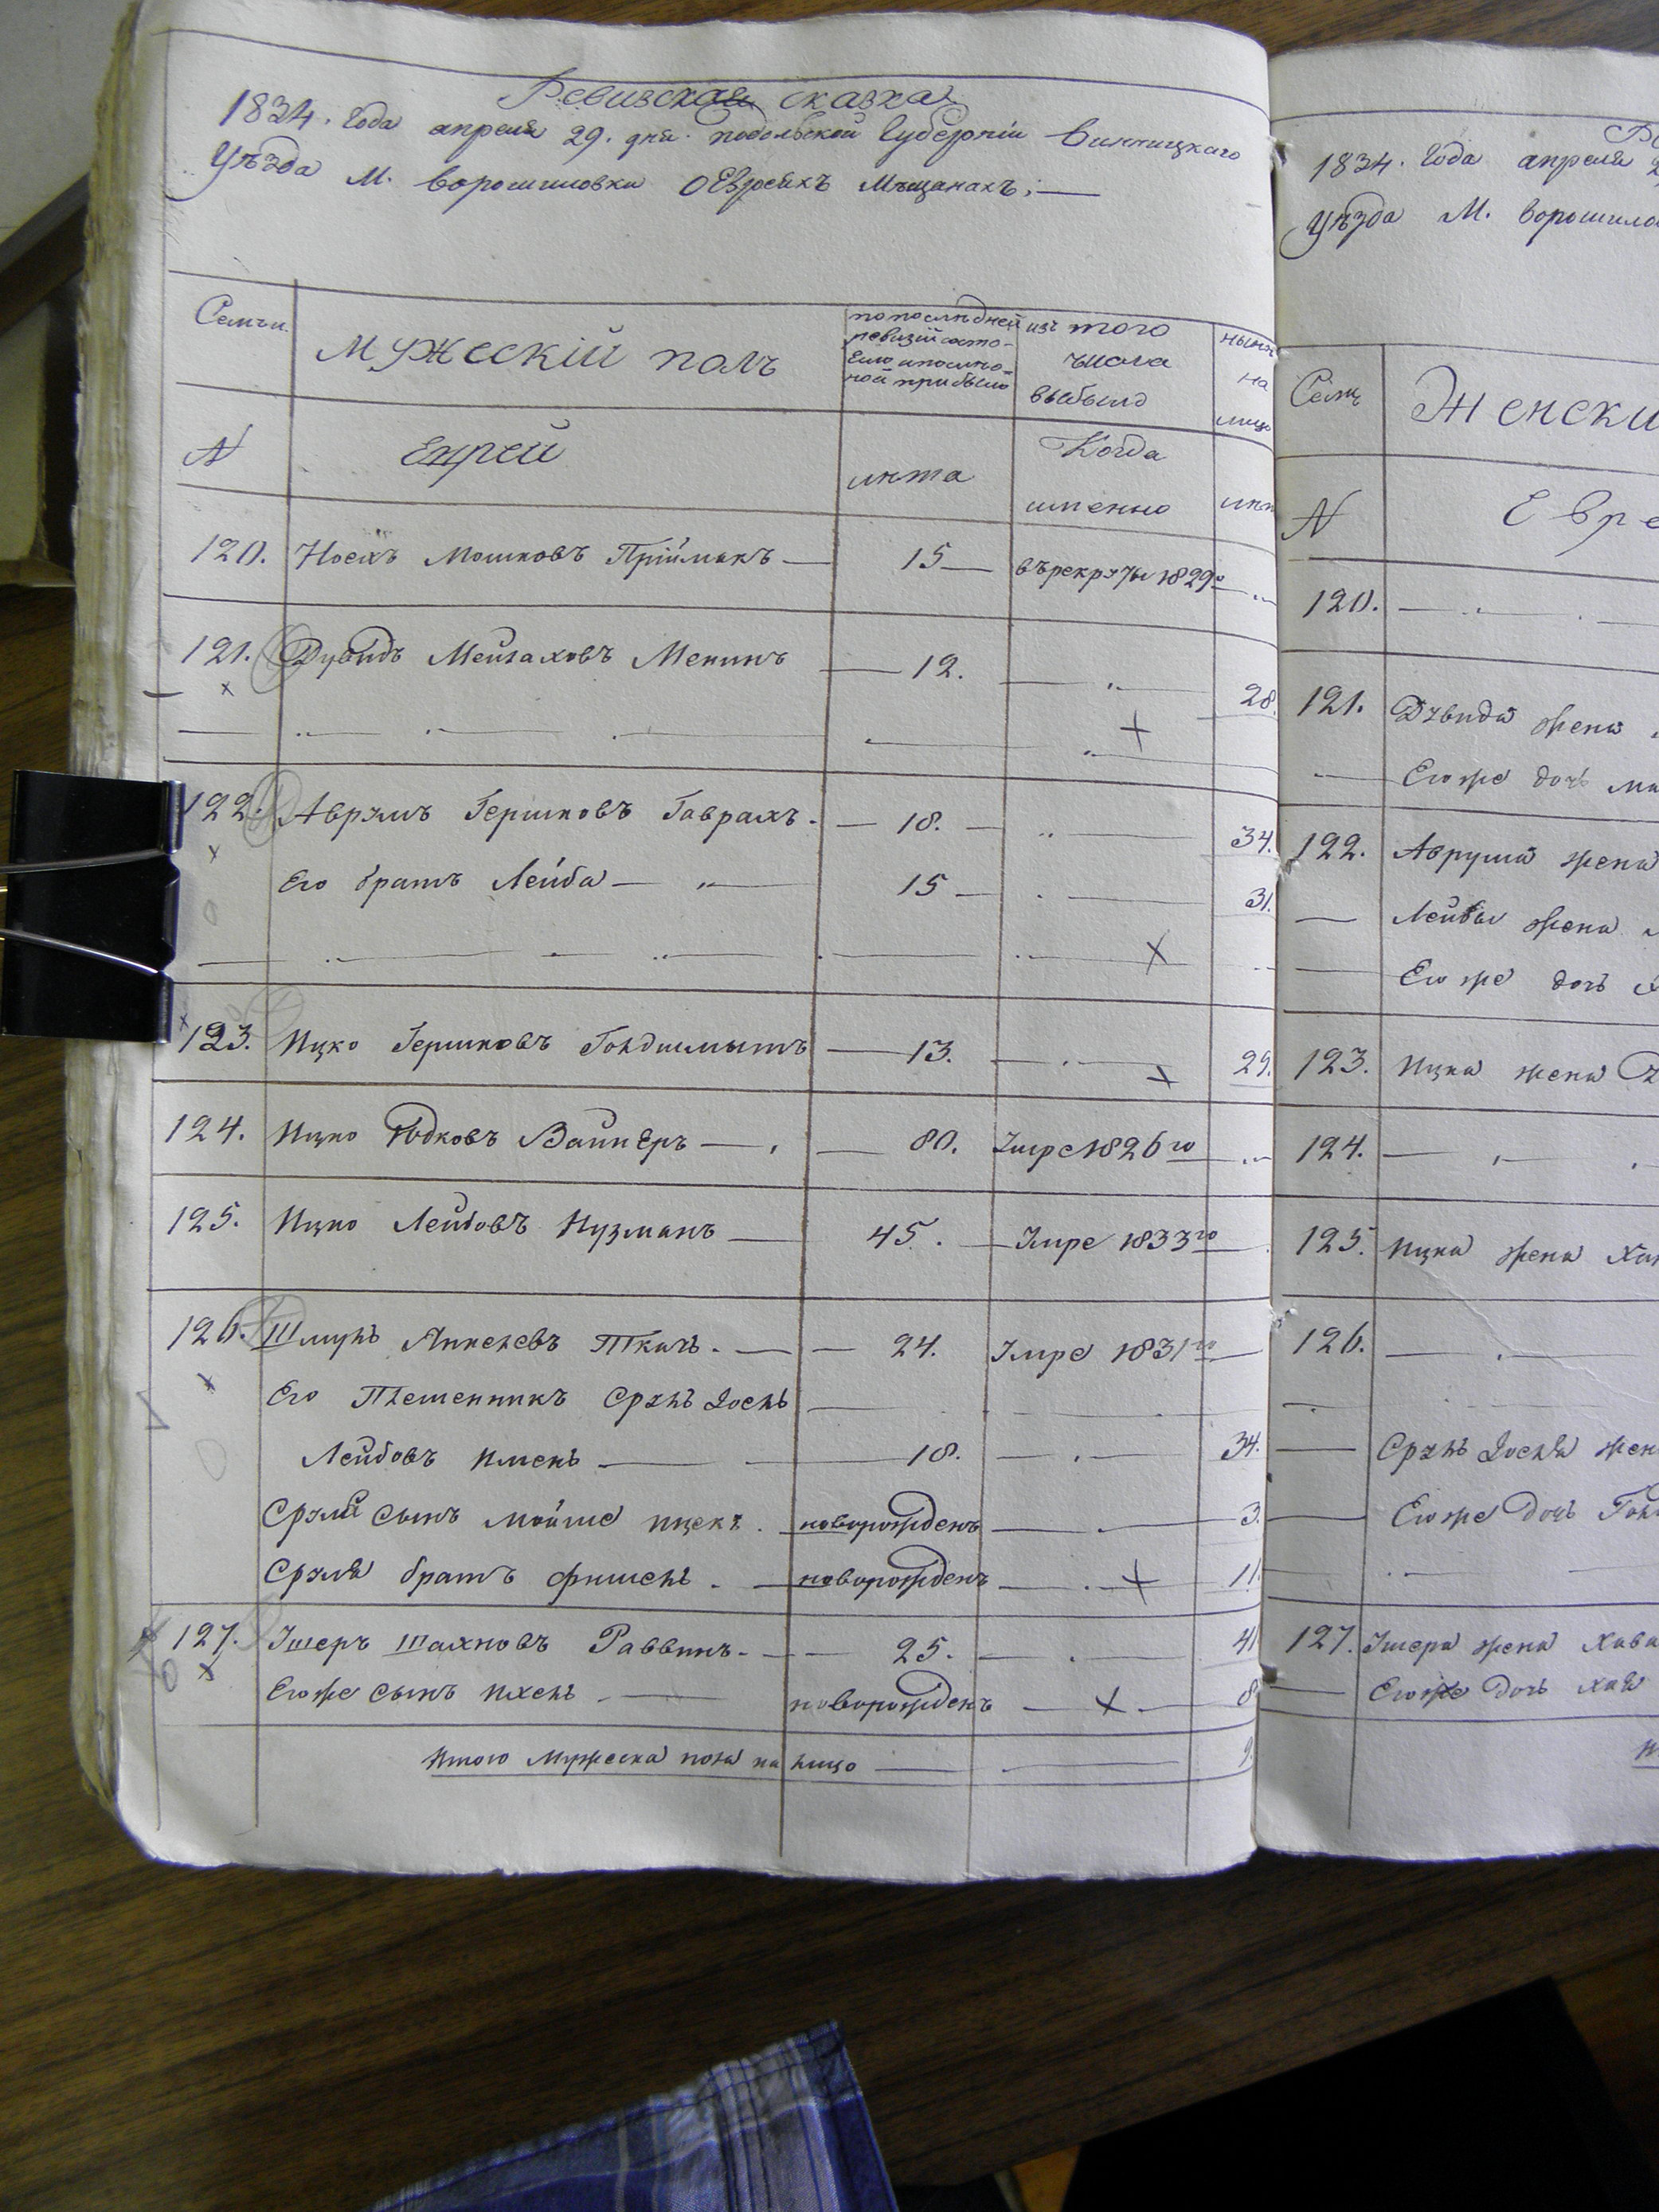 Ревизская сказка
1834. Года апреля 29. дня. подольской Губернiи Винницкаго
Уѣзда М. Ворошиловки О Евреяхъ Мѣщанахъ;
Семьи
Мужескiй полъ
по послѣдней ревизiи состояло и послѣ оной прибыло
изъ того числа выбыло
нынѣ на лицо
N
Еврей
лѣта
Когда именно
лѣт
120. Мошковъ Прiймакъ — 15 — въ рекруты 1829го
121. Дувидъ Менинъ — 12. — 28.
122. Аврумъ Гершковъ — 18. — 34.
Его братъ Лейба — 15 — 31.
123. Ицко Гершковъ — 13. — 29.
124. Ицко Вайнеръ — 80. Умре 1826го
125. Ицко Лейбовъ — 45. — Умре 1833го
126. Шмуль Ткачъ. — 24. Умре 1831го
Его Племенникъ Сруль Iосль
Лейбовъ — 18. — 34.
Сруля сынъ Мойше Ицекъ. новорожденъ — 3.
Сруля братъ Фишель. — новорожденъ — 11.
127. Ушеръ Шахновъ Раввинъ. — 25. — 41
Его же сынъ Ихель — новорожденъ — 8.
Итого Мужеска пола на лицо — 9.
1834. Года апреля 2
Уѣзда М. Ворошило
Семь
Женски
N
Евре
120.
121. Дувида жена
Его же дочь
122. Аврума жена
Лейбы жена
Его же дочь
123. Ицка жена
124.
125. Ицка жена
126.
Сруль Iосля жен
Его же дочь
127. Ушера жена Хава
Его же дочь Хая